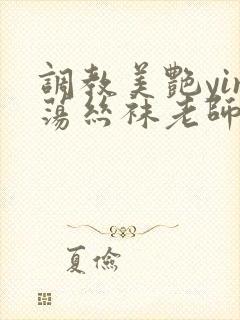 調教美艷yin
蕩絲袜老師
夏儉